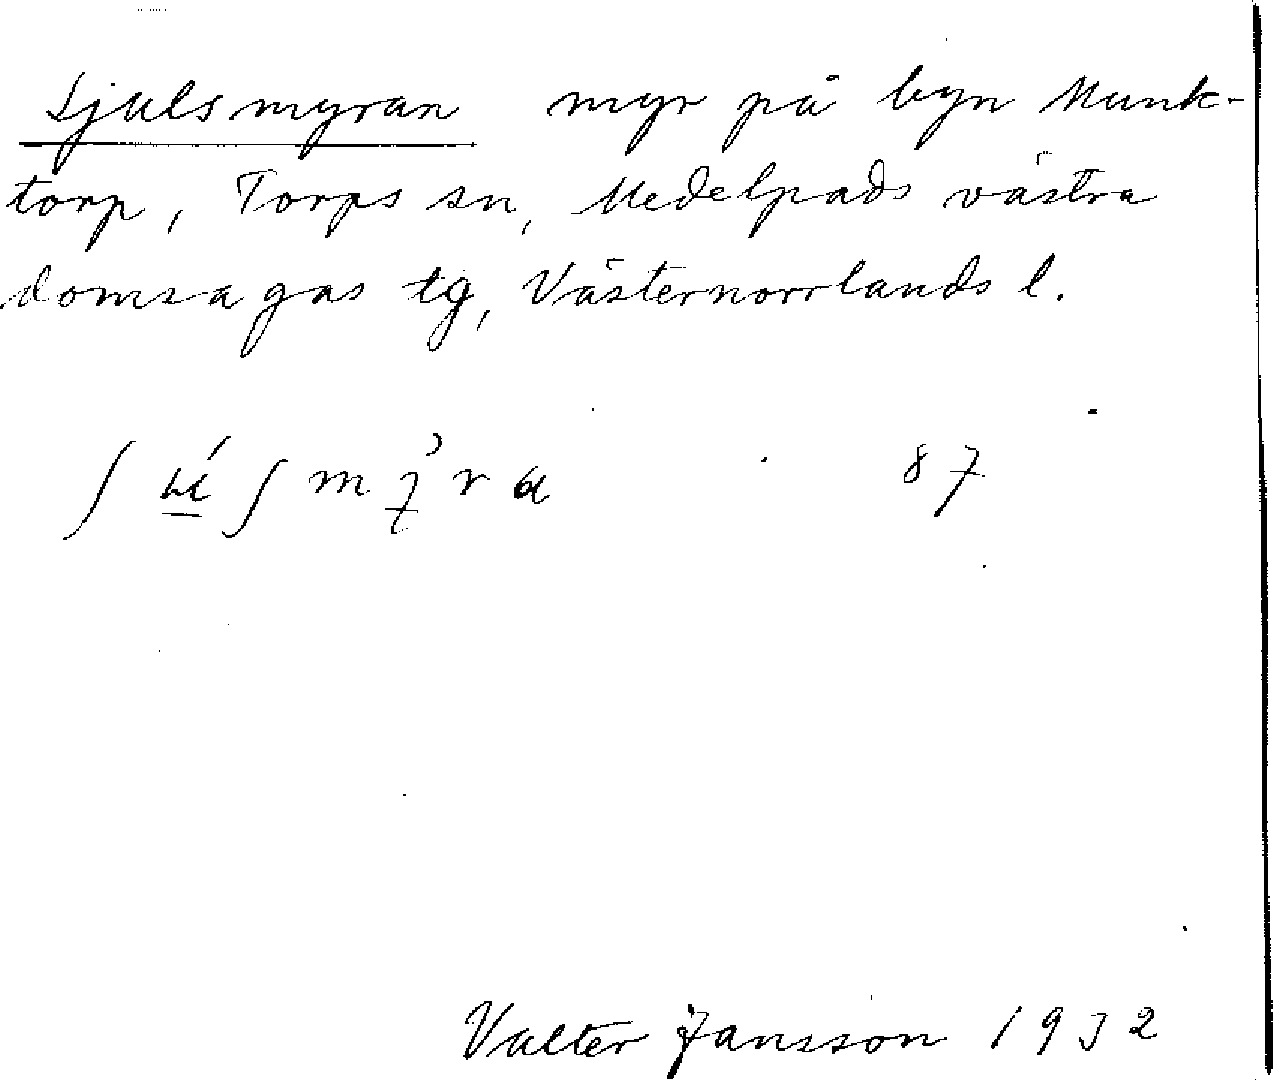 Sjulsmyran myr på byn Munk-
torp, Torps sn, Medelpads västra
domsagas tg, Västernorrlands l.
87
Valter Jansson 1932